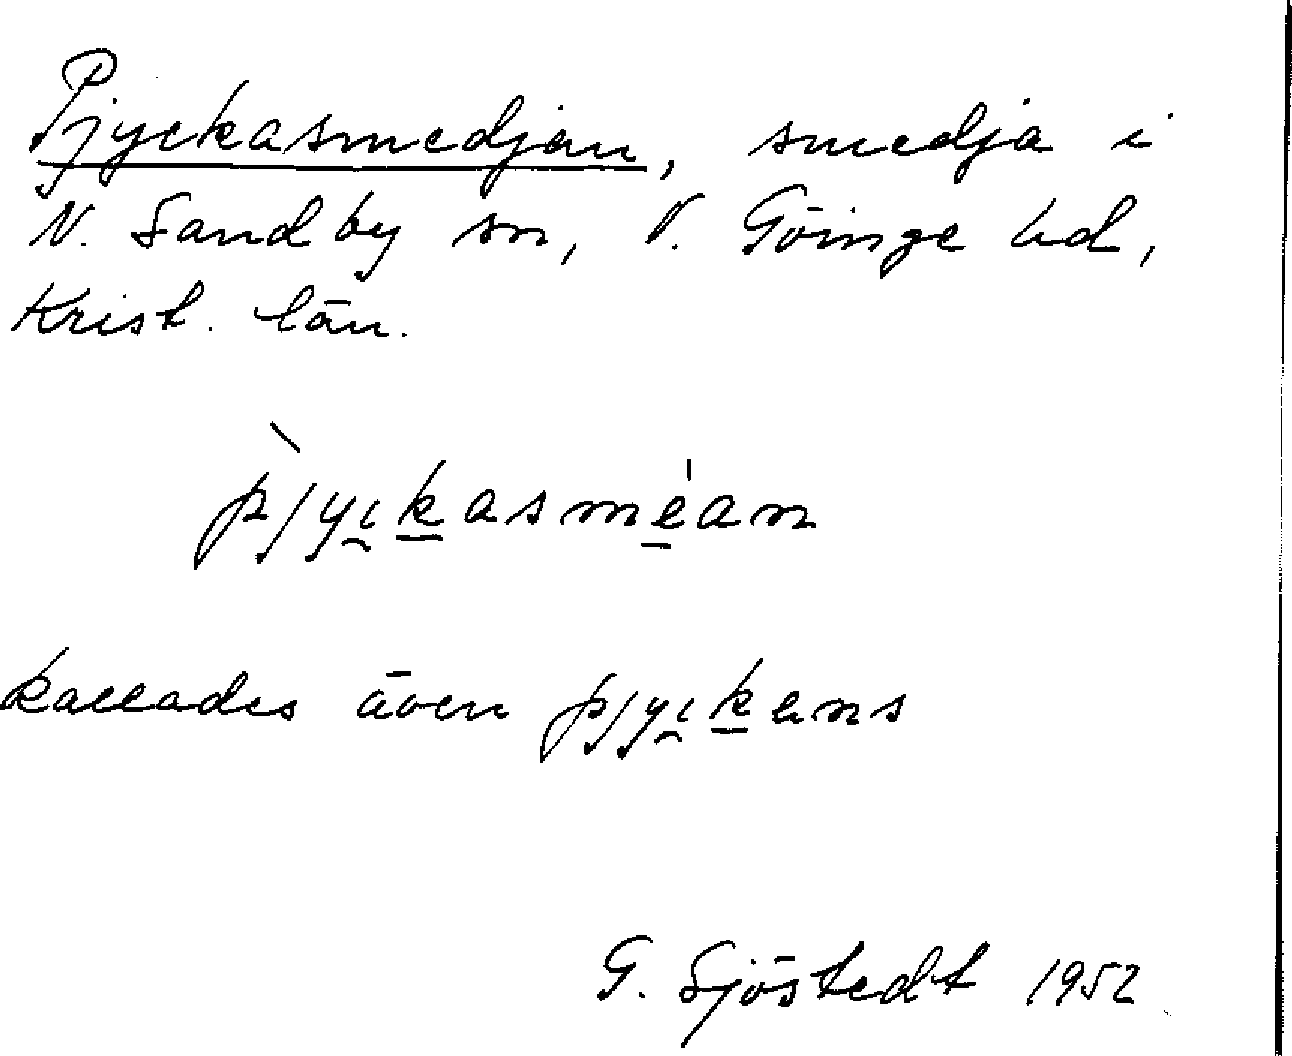 Pjyckasmedjan, smedja i
N. Sandby sn, V. Göinge hd,
Krist. län.
pjyi̯kasmean
kallades även pjyi̯kens
G. Sjöstedt 1952